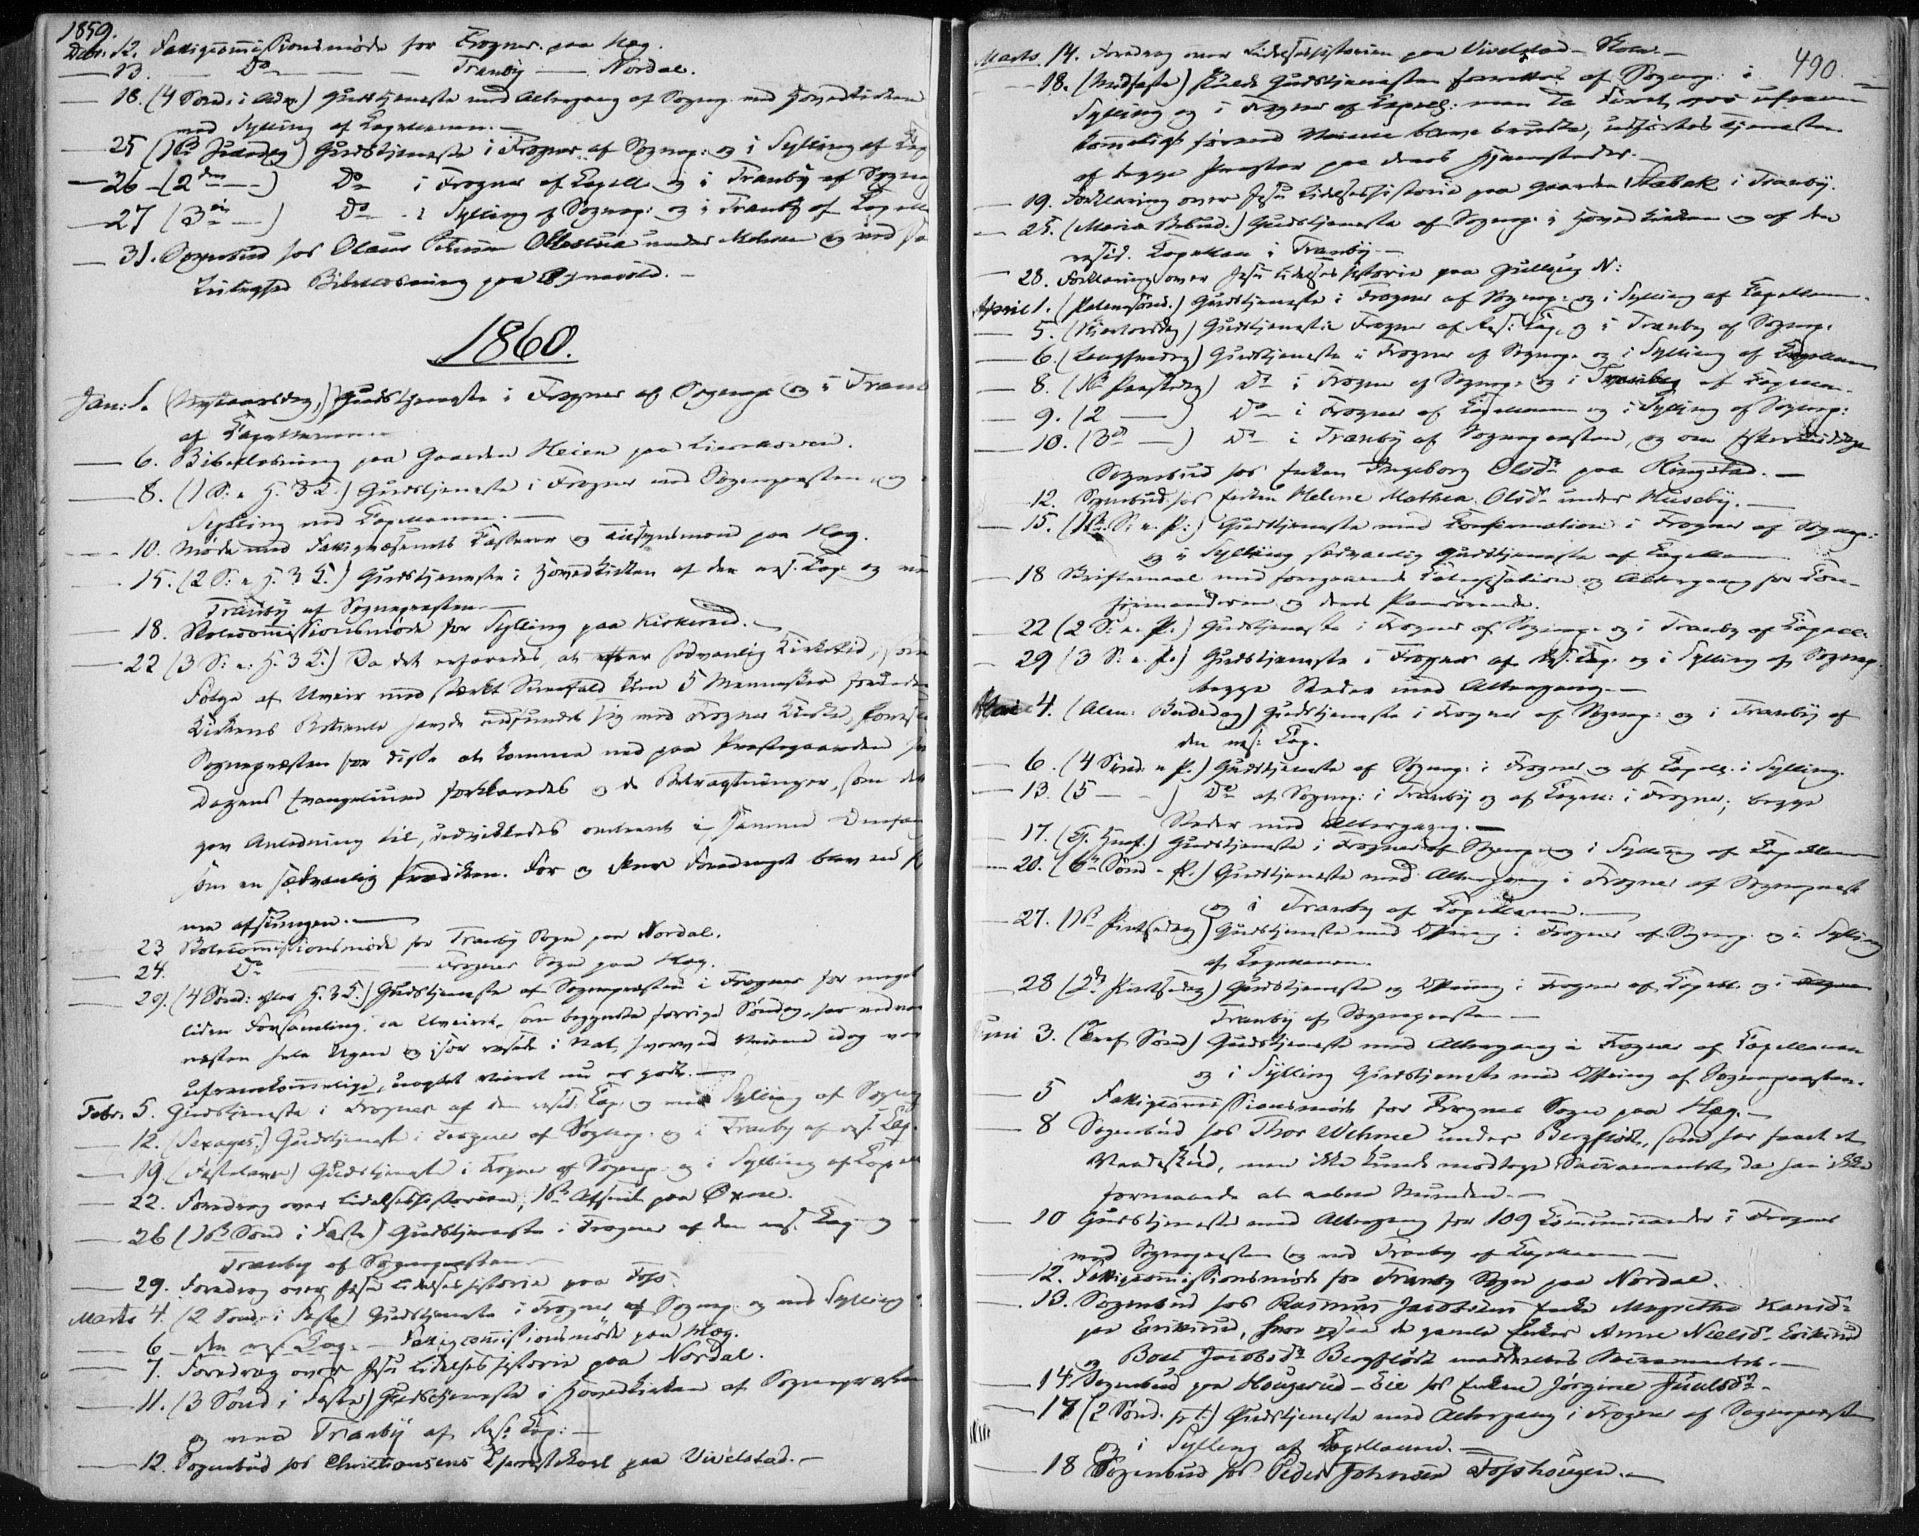 1859.
Decbr. 12. Fattigcommissionsmøde for Frogner paa Hæg.
— 13. — Do — — — Tranby — Nordal.
— 18. (4 Sønd. i Adv.) Gudstjeneste med Altergang af Sognep. med Hovedkirken
med Sylling af Capellanen. —
— 25 (1ste Juledag) Gudstjeneste i Frogner af Sognep. og i Sylling af Cap
— 26 — (2den —) Do i Frogner af Capell. og i Tranby af Sognep
— 27 (3die —) Do - i Sylling af Sognep. og i Tranby af Capell
— 31. Sognebud hos Olaus under og ved
Leilighed Bibellæsning paa
1860.
Jan: 1. (Nytaarsdag,) Gudstjeneste i Frogner af Sognep. og i Tranb
af Capellanen
— 6. Bibellæsning paa Gaarden Heien paa Lierskoven.
— 8. (1 S: e. H. 3 K.) Gudstjeneste i Frogner ved Sognepræsten og
Sylling ved Capellanen. —
— 10. Møde med Fattigvæsenets Kasserer og Tilsynsmænd paa Hæg.
— 15. (2 S: e. H. 3 K.) Gudstjeneste i Hovedkirken af den res. Cap. og
Tranby af Sognepræsten. —
— 18. Skolecommissionsmøde for Sylling paa Kirkerud. —
— 22 (3 S: e: H. 3 K.) Da det erfaredes, at efter sædvanlig Kirketid, som
Følge af Uveir med stærkt Sneefald kun 5 Mennesker foruden
Kirkens Betjente havde indfundet sig ved Frogner Kirke,
Sognepræsten for disse at komme ned paa Præstegaarden
Dagens Evangelium forklaredes og de Betragtninger, som det
gav Anledning til, udvikledes omtrent i samme Omfang
som en sædvanlig Prædiken. Før og efter Foredraget blev en
me afsungen. —
23 Skolecommissionsmøde for Tranby Sogn paa Nordal.
— 24. Do — Frogner Sogn paa Hæg.
— 29. (4 Sønd: efter H. 3 K.) Gudstjeneste af Sognepræsten i Frogner for meget
liden Forsamling, da Uveiret, som begyndte forrige Søndag, har vedvaret
næsten hele Ugen og især rasede i Nat, hvorved Veiene idag vare
ufremkommelige, uagtet Veiret nu er godt. —
Febr. 5. Gudstjeneste i Frogner af den resid. Cap. og med Sylling af Sognep
— 12. (Sexages.) Gudstjeneste i Frogner af Sognep. og i Tranby af res. Cap.
— 19. (Fastelavn) Gudstjeneste i Frogner af Sognep. og i Sylling af Capell
— 22. Foredrag over Lidelseshistorien, 1ste Afsnit paa Øxne.
— 26 (1ste Sønd i Faste) Gudstjeneste i Frogner af den res. Cap. og
Tranby af Sognepræsten —
— 29. Foredrag over Jesu Lidelseshistorie paa Foss.
Marts 4. (2 Sønd. i Faste) Gudstjeneste i Frogner af Sognep. og ved Sylling
— 6 — den res. Cap. — Fattigcommissionsmøde paa Hæg.
— 7. Foredrag over Jesu Lidelseshistorie paa Nordal.
— 11. (3 Sønd i Faste) Gudstjeneste i Hovedkirken af Sognepræsten
og med Tranby af Res. Cap. —
— 12. Sognebud hos Christiansens paa Vivelstad. —
490.
Marts. 14. Foredrag over Lidelseshistorien paa Vivelstad —
— 18. (Midfaste) skulde Gudstjenesten forrettes af Sognep. i
Sylling og i Frogner af Capell. men da Føret var ufrem-
kommeligt førend Veiene bleve brudte, udførtes Tjenesten
af begge Præster paa deres Hjemsteder. —
— 19. Forklaring over Jesu Lidelseshistorie paa Gaarden Stabæk i Tranby.
— 25. (Mariæ Bebud.) Gudstjeneste af Sognep. i Hovedkirken og af den
resid. Capellan i Tranby —
— 28. Forklaring over Jesu Lidelseshistorie paa Gullaug N:
April 1. (Palmesønd.) Gudstjeneste i Frogner af Sognep. og i Sylling af Capellanen.
— 5. (Skjertorsdag) Gudstjeneste i Frogner af Res. Cap. og i Tranby af Sognep.
— 6. (Langfredag) Gudstjeneste i Frogner af Sognep. og i Sylling af Capellanen
— 8. (1ste Paaskedag) Do i Frogner af Sognep. og i Tranby af Capellan.
— 9. (2 —) Do i Frogner af Capellanen og i Sylling af Sognep:
— 10. (3d —) Do — i Tranby af Sognepræsten, og om Eftermiddag
Sognebud hos Enken Ingeborg Olsdr. paa Ringstad. —
— 12. Sognebud hos Enken Helene Mathea Olsdr. under Huseby. —
— 15. (1ste S: e. P.) Gudstjeneste med Confirmation i Frogner af Sognep.
og i Sylling sædvanlig Gudstjeneste af Capellanen
— 18 Skriftemaal med foregaaende Catechisation og Altergang for Con-
firmanderne og deres Paarørende.
— 22 (2 S: e. P.) Gudstjeneste i Frogner af Sognep. og i Tranby af Capell.
— 29 (3 S: e. P.) Gudstjeneste i Frogner af Res. Cap. og i Sylling af Sognep.
begge Steder med Altergang. —
Mai 4. (Alm: Bededag) Gudstjeneste i Frogner af Sognep: og i Tranby af
den res: Cap.
— 6. (4 Sønd. e P.) Gudstjeneste af Sognep: i Frogner og af Capell. i Sylling.
— 13. (5 — —) Do af Sognep: i Tranby og af Capell: i Frogner; begge
Steder med Altergang. —
— 17. (Chr. Himf.) Gudstjeneste i Frogner af Sognep. og i Sylling af Capellanen
— 20. (6te Sønd e. P.) Gudstjeneste med Altergang i Frogner af Sognepræst
og i Tranby af Capellanen. —
— 27. (1ste Pintsedag) Gudstjeneste med Offring i Frogner af Sognep. og i Sylling
af Capellanen.
— 28 (2d Pintsedag) Gudstjeneste og Offring i Frogner af Capell. og i
Tranby af Sognepræsten —
Juni 3. (Tref. Sønd) Gudstjeneste med Altergang i Frogner af Capellanen
og i Sylling Gudstjeneste med Offring af Sognepræsten.
— 5 Fattigcommissionsmøde for Frogner Sogn paa Hæg. —
— 8 Sognebud hos Thor Wehme under Bergflødt, som har faaet et
Vaadeskud, men ikke kunde modtage Sacramentet, da han ikke
formaaede at aabne Munden. —
— 10 Gudstjeneste med Altergang for 109 Communicanter i Frogner
med Sognepræsten og ved Tranby af Capellanen —
— 12. Fattigcommissionsmøde for Tranby Sogn paa Nordal.
— 13. Sognebud hos Rasmus Jacobsens Enke Magrethe Hansd.
paa Eriksrud, hvor ogsaa de gamle Enker Anne Nielsd. Eriksrud
og Boel Jacobsd. Bergflødt meddeeltes Sacramentet. —
— 14 Sognebud paa Hougerud-Eie hos Enken Jørgine Juulsdr. —
— 17 (2 Sønd. p. t.) Gudstjeneste med Altergang i Frogner af Sognepræsten
og i Sylling af Capellanen. —
— 18 Sognebud hos Peder Johnsen Fosshougen. —